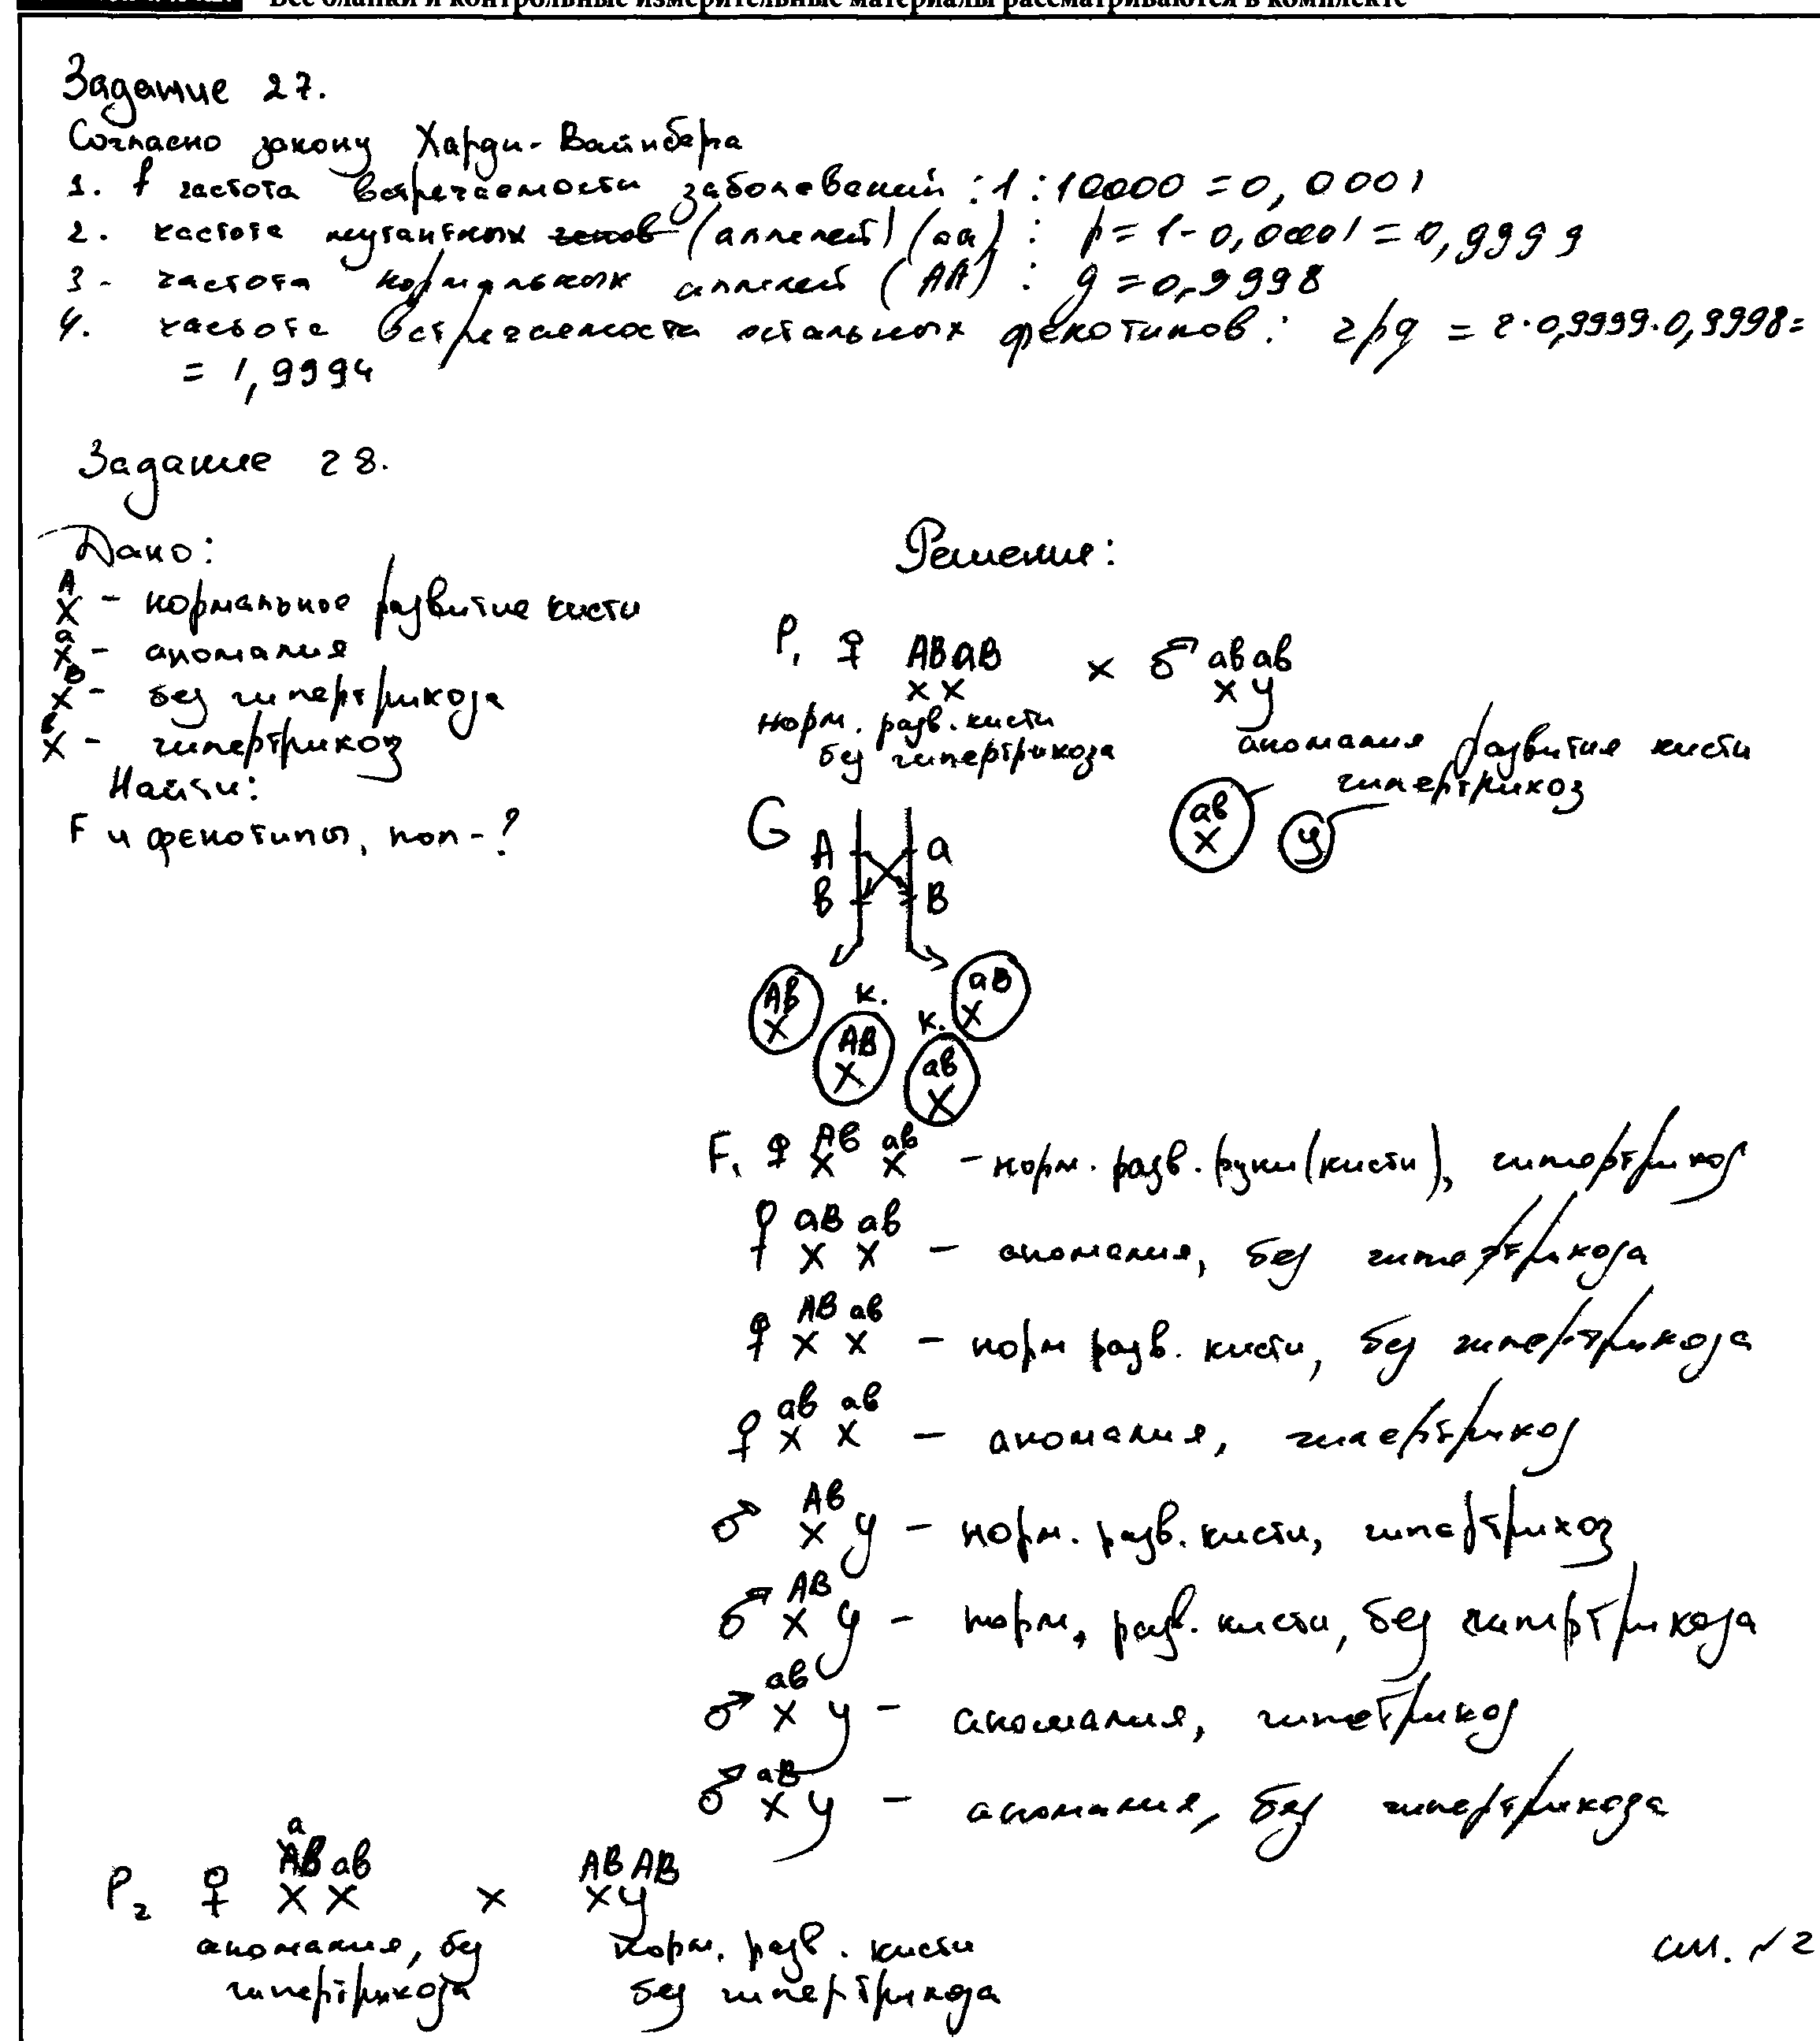 Все бланки и контрольные измерительные материалы рассматриваются в комплекте
Задание 27.
Согласно закону Харди-Вайнберга
1. f частота встречаемости заболеваний : 1 : 10000 = 0,0001
2. частота мутантных генов (аллелей) (аа) : p = 1 - 0,0001 = 0,9999
3 - частота нормальных аллелей (АА) : q = 0,9998
4. частота встречаемости остальных фенотипов : 2pq = 2·0,9999·0,9998 =
= 1,9994
Задание 28.
Дано:
X^A - нормальное развитие кисти
X^a - аномалия
X^B - без гипертрикоза
X^b - гипертрикоз
Найти:
F и фенотипы, пол - ?
Решение:
P₁ ♀ X^AB X^aB × ♂ X^ab Y^ab
норм. разв. кисти без гипертрикоза
аномалия развития кисти гипертрикоз
G
A a
b B
X^Ab к. X^AB к. X^ab X^aB
X^ab Y
F₁ ♀ X^Ab X^ab - норм. разв. руки (кисти), гипертрикоз
♀ X^aB X^ab - аномалия, без гипертрикоза
♀ X^AB X^ab - норм разв. кисти, без гипертрикоза
♀ X^ab X^ab - аномалия, гипертрикоз
♂ X^Ab Y - норм. разв. кисти, гипертрикоз
♂ X^AB Y - норм. разв. кисти, без гипертрикоза
♂ X^ab Y - аномалия, гипетрикоз
♂ X^aB Y - аномалия, без гипертрикоза
P₂ ♀ X^aB X^ab × X^AB Y^AB
аномалия, без норм. разв. кисти
гипертрикоза без гипертрикоза
см. №2